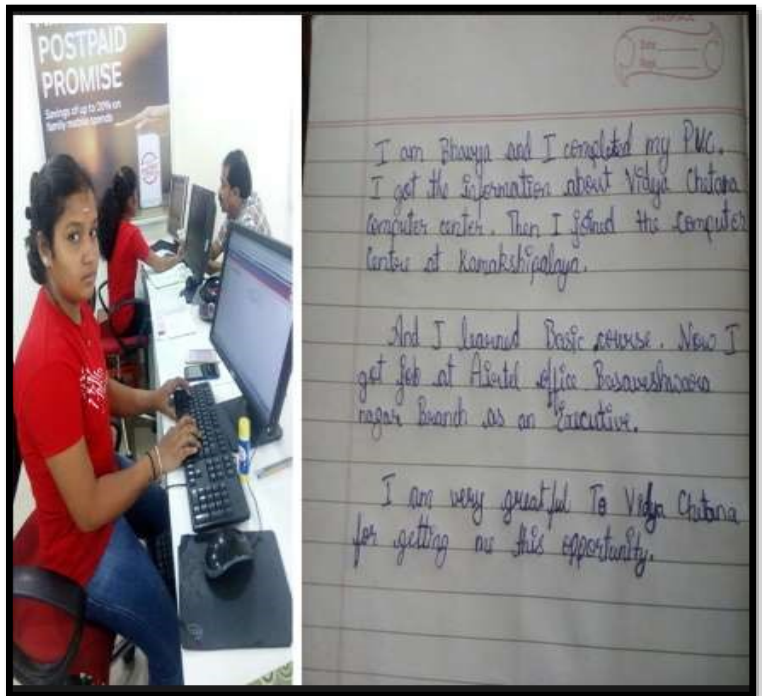 POSTPAID
PROMISE
Savings of up to 20% on
family mobile spends
Date
Page
I am Bhavya and I completed my PUC.
I got the information about Vidya Chetana
Computer center. Then I joined the Computer
Centre at Kamakshipalaya.
And I learned Basic course. Now I
got job at Airtel office Basaveshwara
nagar Branch as an Executive.
I am very greatful To Vidya Chetana
for getting me this opportunity.